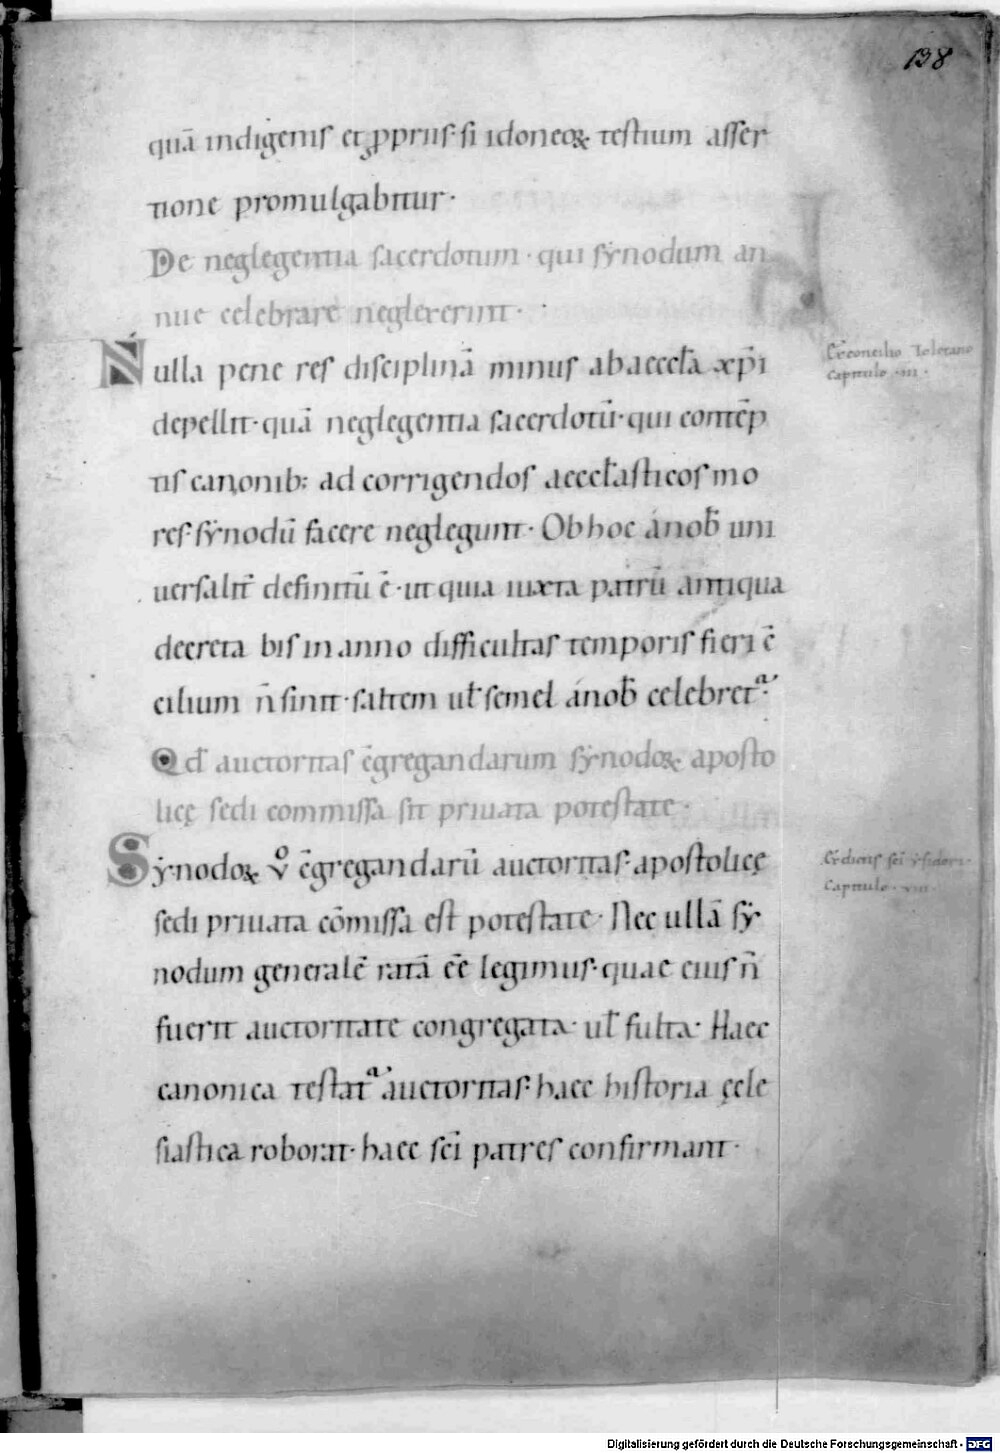 138
quā indigenis et ꝓpriis· si idoneoꝝ testium asser
tione promulgabitur·
De neglegentia sacerdotum· qui sẏnodum an
nue celebrare neglexerint·
Nulla pene res disciplinā minus ab aeccl̄a xp̄i
depellit· quā neglegentia sacerdotū· qui contēp
tis canonib: ad corrigendos aeccl̄asticos mo
res· sẏnodū facere neglegunt· Ob hoc á nob̄ uni
uersalit̄ definitū ē· ut quia iuxta patrū antiqua
decreta bis in anno difficultas temporis fieri c̄
cilium n̄ sinit· saltem ul̄ semel á nob̄ celebret᷒·
Qd̄ auctoritas c̄gregandarum sẏnodoꝝ aposto
licę sedi commissa sit priuata potestate·
Sẏnodoꝝ vͦ c̄gregandarū auctoritas· apostolicę
sedi priuata cōmissa est potestate· Nec ullā sẏ
nodum generalē ratā ēē legimus· quae eius n̄
fuerit auctoritate congregata· ul̄ fulta· Haec
canonica testat᷒ auctoritas· haec historia ęcle
siastica roborat· haec sc̄i patres confirmant·
Ex concilio Toletano
Capitulo ·III·
Ex dictis sc̄i ẏsidori·
Capitulo· VIII·
Digitalisierung gefördert durch die Deutsche Forschungsgemeinschaft - DFG